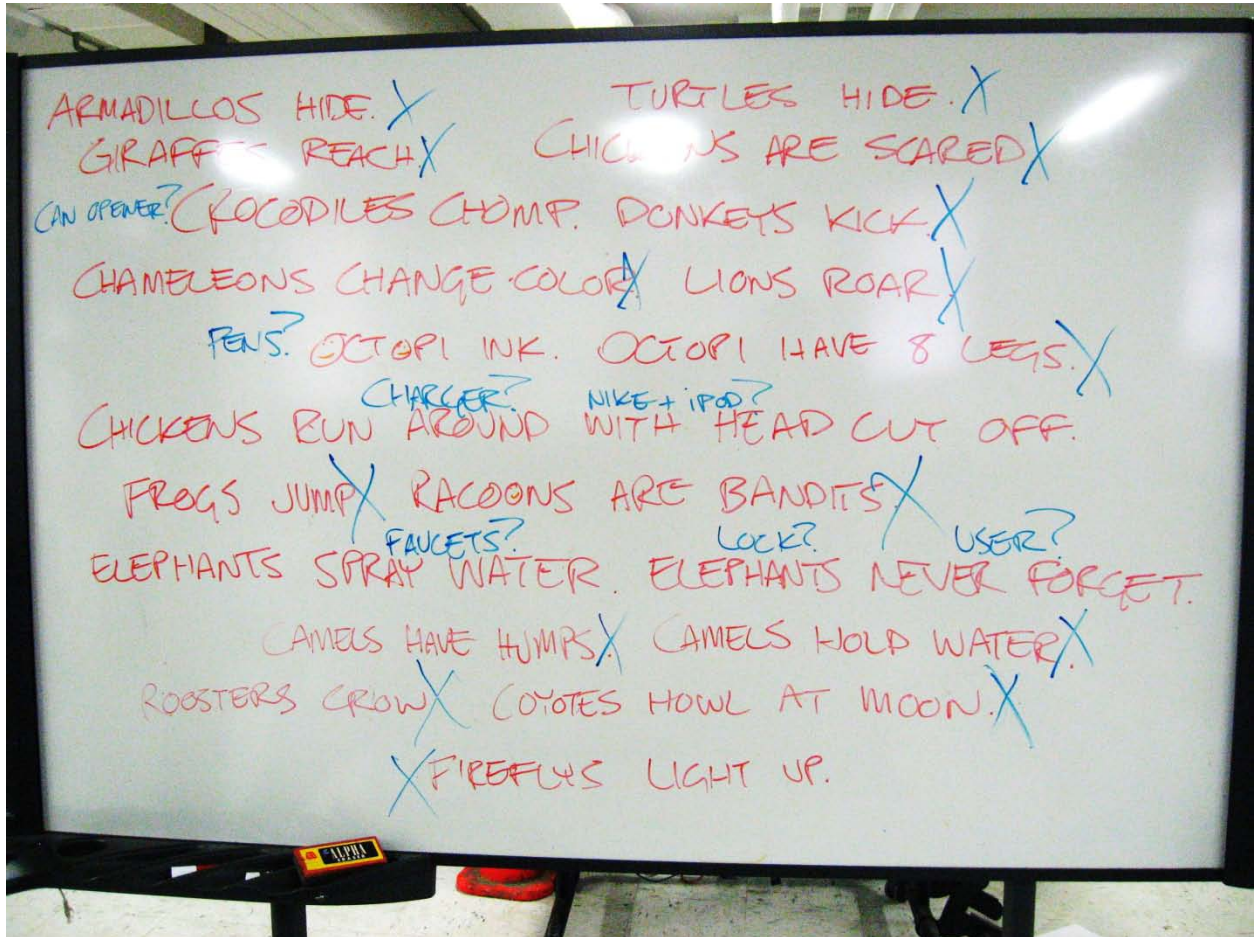 ARMADILLOS HIDE. X TURTLES HIDE. X
GIRAFFES REACH. X CHICKENS ARE SCARED X
CAN OPENER? CROCODILES CHOMP. DONKEYS KICK. X
CHAMELEONS CHANGE COLOR. X LIONS ROAR. X
PENS? OCTOPI INK. OCTOPI HAVE 8 LEGS. X
CHARGER? NIKE + iPOD?
CHICKENS RUN AROUND WITH HEAD CUT OFF.
FROGS JUMP X RACOONS ARE BANDITS. X
FAUCETS? LOCK? USER?
ELEPHANTS SPRAY WATER. ELEPHANTS NEVER FORGET.
CAMELS HAVE HUMPS. X CAMELS HOLD WATER. X
ROOSTERS CROW X COYOTES HOWL AT MOON. X
X FIREFLYS LIGHT UP.
ALPHA